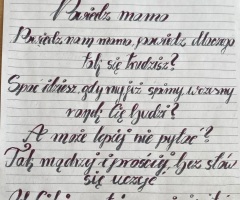 Powiedz mamo
Powiedz nam mamo, powiedz dlaczego
tak się trudzisz?
Spać idziesz, gdy my już śpimy, wczesny
ranek Cię budzi?
A może lepiej nie pytać?
Tak mądrzej i prościej, bez słów
się uczyć